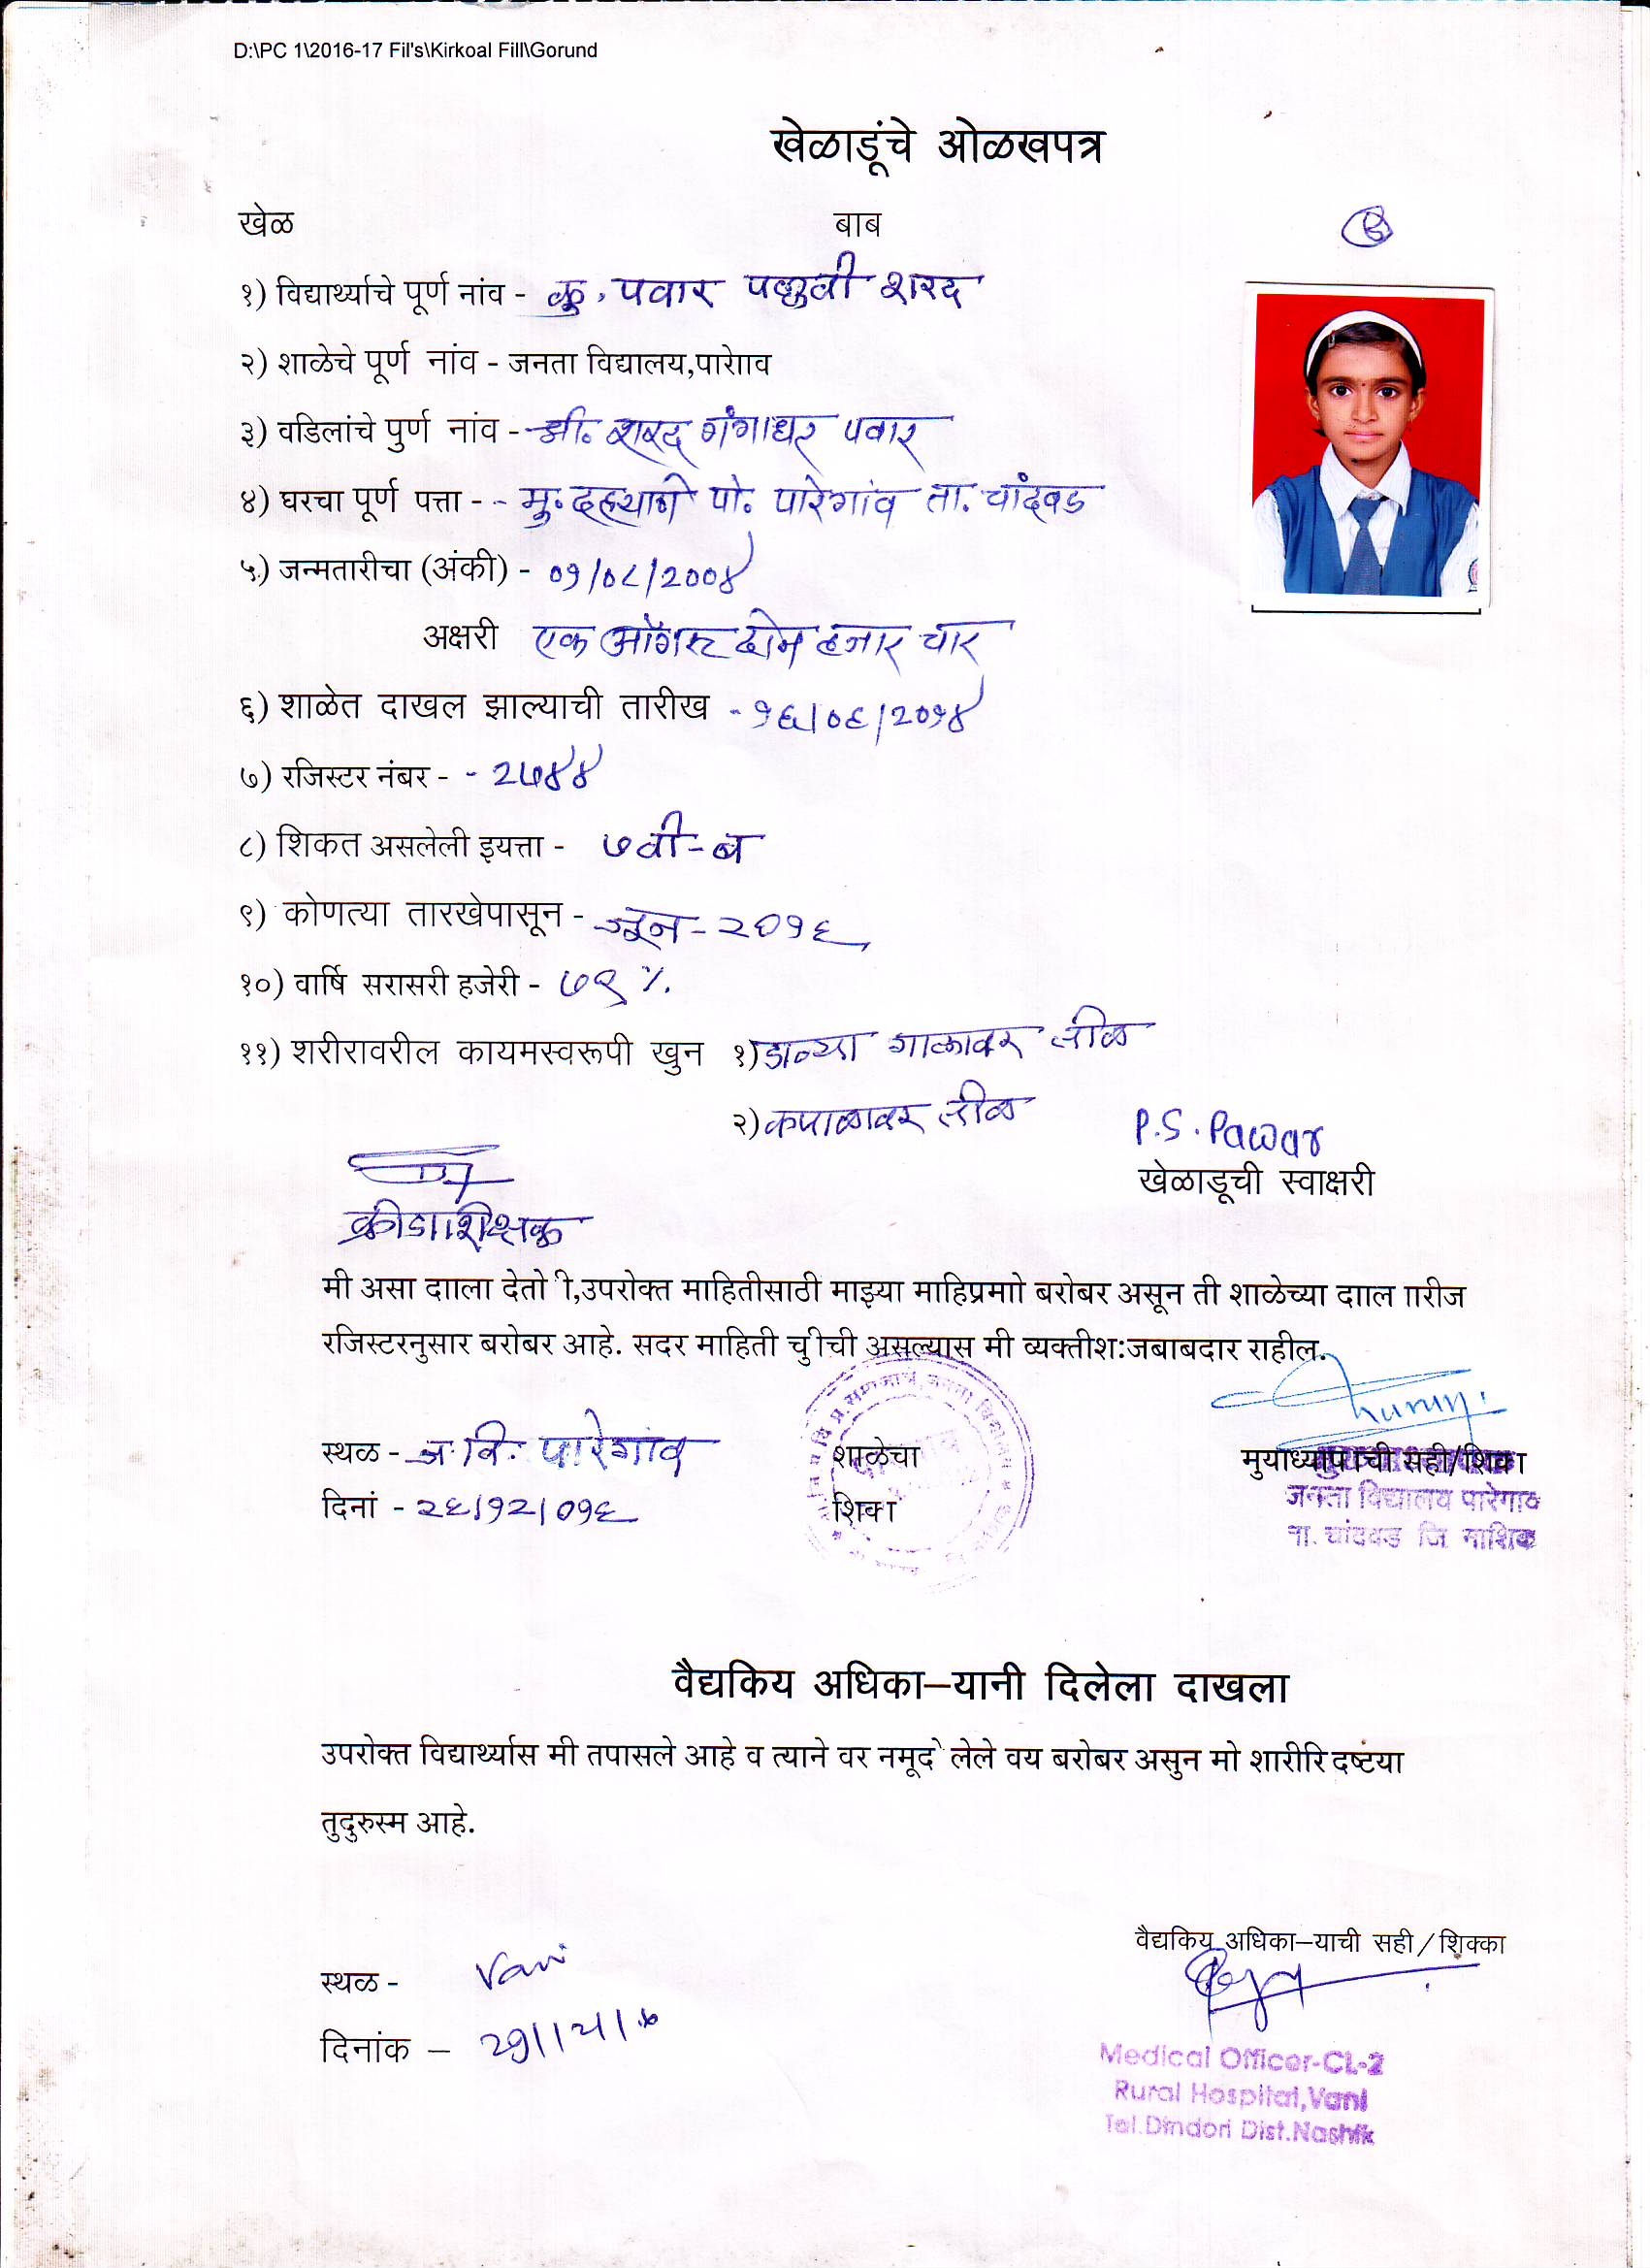 D:\PC 1\2016-17 Fil's\Kirkoal Fill\Gorund
खेळाडूंचे ओळखपत्र
खेळ बाब
१) विद्यार्थ्याचे पूर्ण नांव - कु. पवार पल्लवी शरद
२) शाळेचे पूर्ण नांव - जनता विद्यालय,पारेााव
३) वडिलांचे पुर्ण नांव - श्री. शरद गंगाधर पवार
४) घरचा पूर्ण पत्ता - - मु. दह्याणे पो. पारेगांव ता. चांदवड
५) जन्मतारीचा (अंकी) - ०१/०८/२००४
अक्षरी एक ऑगस्ट दोन हजार चार
६) शाळेत दाखल झाल्याची तारीख - १६/०६/२०१४
७) रजिस्टर नंबर - - २७४४
८) शिकत असलेली इयत्ता - ७वी-ब
९) कोणत्या तारखेपासून - जून - २०१६
१०) वार्षि सरासरी हजेरी - ७९ %
११) शरीरावरील कायमस्वरूपी खुन १) डाव्या गालावर तीळ
२) कपाळावर तीळ
P.S. Pawar
खेळाडूची स्वाक्षरी
क्रीडाशिक्षक
मी असा दााला देतो ी,उपरोक्त माहितीसाठी माझ्या माहिप्रमाो बरोबर असून ती शाळेच्या दााल ाारीज
रजिस्टरनुसार बरोबर आहे. सदर माहिती चुीची असल्यास मी व्यक्तीश:जबाबदार राहील.
स्थळ - ज. वि. पारेगांव शाळेचा मुयाध्यापाची सही/शिक्का
दिनां - २६/१२/०१६ शिक्का
जनता विद्यालय पारेगाव
ता. चांदवड जि. नाशिक
वैद्यकिय अधिका–यानी दिलेला दाखला
उपरोक्त विद्यार्थ्यास मी तपासले आहे व त्याने वर नमूद ेलेले वय बरोबर असुन मो शारीरि दष्टंया
तुदुरुस्म आहे.
वैद्यकिय अधिका–याची सही / शिक्का
स्थळ - Vani
दिनांक –
Medical Officer-CL-2
Rural Hospital,Vani
Tel.Dindori Dist.Nashik